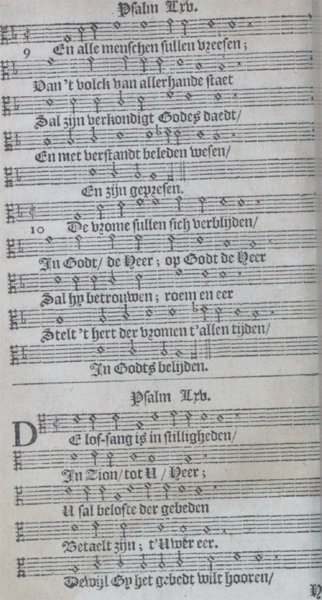 Psalm Lxv.
9 En alle menschen sullen vreesen;
Dan 't volck van allerhande staet
Sal zijn verkondigt Godes daedt/
En met verstandt beleden wesen/
En zijn gepresen.
10 De vrome sullen sich verblijden/
In Godt/ de Heer; op Godt de Heer
Sal hy betrouwen; roem en eer
Stelt 't hert der vromen t'allen tijden/
In Godts belijden.
Psalm Lxv.
DE lof-sang is in stilligheden/
In Zion/ tot U/ Heer;
U sal belofte der gebeden
Betaelt zijn; t'Uwer eer.
Dewijl Gy het gebedt wilt hooren/